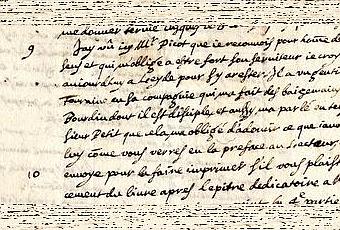 me donner terme jusques
9 J'ay vû icy Mr. Picot que ie reconnoy pour homme de
sens et qui m'oblige a estre fort son serviteur ie croy
aujourdhuy a Leyde pour s'y arester. Il a un genti
Touraine en sa compagnie qui m'a fait des baisemains
Bourdin dont il est disciple et aussy m'a parlé en te
sieur Petit que cela m'a obligé d'adoucir ce que j'av
luy come vous verres en la preface au Lecteur
10 envoye pour la faire imprimer s'il vous plaist
cement du livre apres l'epitre dedicatoire a
la 4e partie